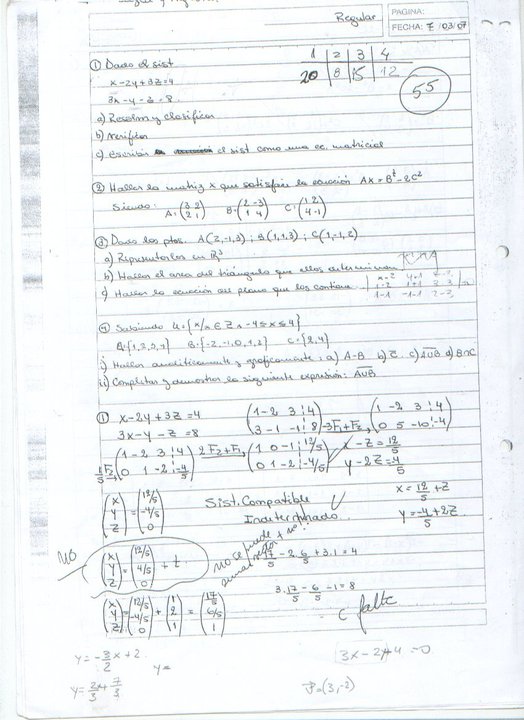 Regular
PAGINA:
FECHA: 7/03/07
1 2 3 4
20 8 15 12
55
① Dado el sist
x-2y+3z=4
3x-y-z=8
a) Resolver y clasificar
b) Verificar
c) Escribir el sist como una ec. matricial
② Hallar la matriz x que satisface la ecuación AX=Bᵗ-2C²
Siendo: A=(3 2 / 2 1) B=(2 -3 / 1 4) C=(1 2 / 4 -1)
③ Dados los ptos. A(2,-1,3); B(1,1,3); C(1,-1,2)
a) Representarlos en R³
b) Hallar el area del triángulo que ellos determinan
c) Hallar la ecuación del plano que los contiene
④ Sabiendo U={x/x ∈ Z ∧ -4≤x≤4}
B={-2,-1,0,1,2} C={2,4}
i) Hallar analiticamente y graficamente: a) A-B b) C̅ c) A∪B d) B∩C
ii) Completar y demostrar la siguiente expresión: A∪B
① x-2y+3z=4 (1 -2 3 ⋮ 4 / 3 -1 -1 ⋮ 8) -3F₁+F₂ (1 -2 3 ⋮ 4 / 0 5 -10 ⋮ -4)
3x-y-z=8
1/5 F₂ (1 -2 3 ⋮ 4 / 0 1 -2 ⋮ -4/5) 2F₂+F₁ (1 0 -1 ⋮ 12/5 / 0 1 -2 ⋮ -4/5) x-z=12/5
y-2z=-4/5
(x / y / z)=(12/5 / -4/5 / 0) Sist. Compatible
Indeterminado
x=12/5+z
y=-4/5+2z
NO
(x / y / z)=(12/5 / 4/5 / 0)+t
NO se puede sumar vector + nº!
17/5-2·6/5+3·1=4
3·17/5-6/5-1=8
(x / y / z)=(12/5 / -4/5 / 0)+(1 / 2 / 1)=(17/5 / 6/5 / 1)
c falta
y=-3/2x+2 y=
3x-2y+4=0
y=2x/3+7/3
v=(3,-2)